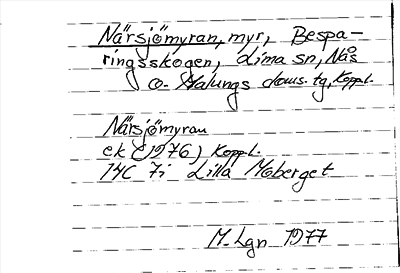 Närsjömyran, myr, Bespa-
ringsskogen, Lima sn, Nås
o. Malungs doms. tg, Koppl.
Närsjömyran
ek (1976) Koppl.
14C 7i Lilla Moberget
M. Lgn 1977